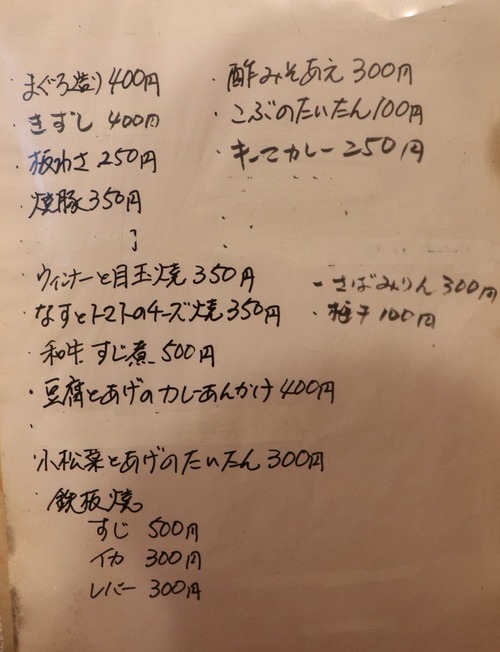 ・まぐろ造り 400円
・きずし 400円
・板わさ 250円
・焼豚 350円
・酢みそあえ 300円
・こぶのたいたん 100円
・キーマカレー 250円
ウィンナーと目玉焼 350円
・なすとトマトのチーズ焼 350円
・和牛すじ煮 500円
・豆腐とあげのカレーあんかけ 400円
・さばみりん 300円
・梅干 100円
小松菜とあげのたいたん 300円
・鉄板焼
すじ 500円
イカ 300円
レバー 300円